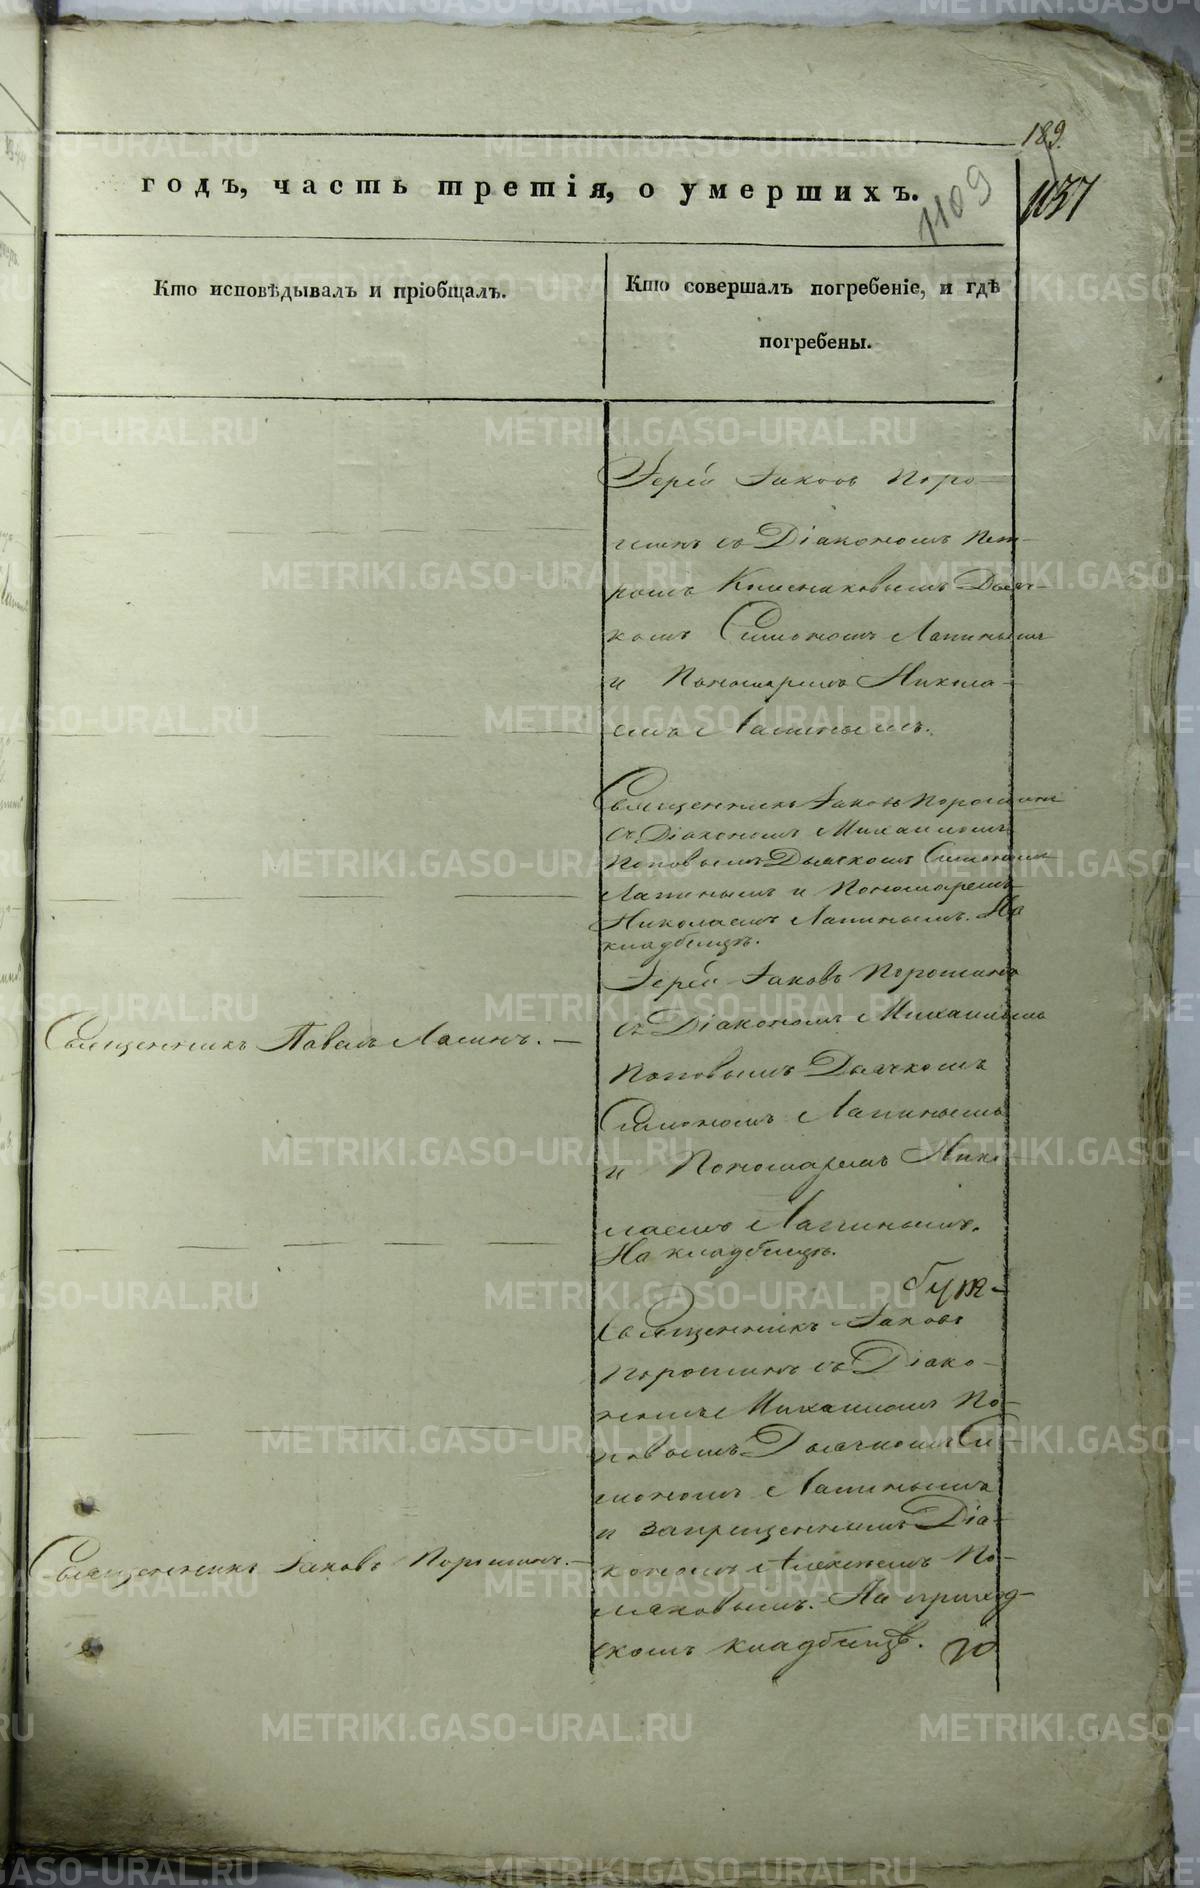 189.
годъ, часть третія, о умершихъ.
1109
1137
Кто исповѣдывалъ и пріобщалъ.
Кто совершалъ погребеніе, и гдѣ
погребены.
Іерей Іаковъ Поро-
шинъ съ Діакономъ Пет-
ромъ Дьяч-
комъ Симономъ Лапинымъ
и Пономаремъ Никола-
емъ Лапинымъ.
Священникъ Іаковъ Порошинъ
съ Діакономъ Михаиломъ
Поповымъ Дьячкомъ Симономъ
Лапинымъ и Пономаремъ
Николаемъ Лапинымъ. На
кладбищѣ.
Священникъ Павелъ Лапинъ. —
Іерей Іаковъ Порошинъ
съ Діакономъ Михаиломъ
Поповымъ Дьячкомъ
Симономъ Лапинымъ
и Пономаремъ Нико-
лаемъ Лапинымъ.
На кладбищѣ.
Священникъ Іаковъ Порошинъ. —
Священникъ Іаковъ
Порошинъ съ Діако-
номъ Михаиломъ По-
повымъ Дьячкомъ Си-
мономъ Лапинымъ
и запрещеннымъ Діа-
кономъ Алексѣемъ По-
ляковымъ. На приход-
скомъ кладбищѣ.
METRIKI.GASO-URAL.RU